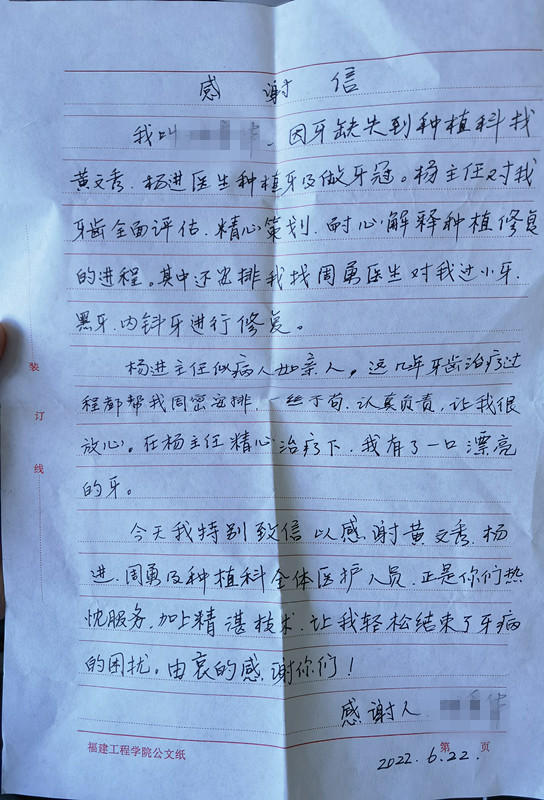 感谢信
我叫 、因牙缺失到种植科找
黄文秀、杨进医生种植牙及做牙冠。杨主任对我
牙齿全面评估、精心策划、耐心解释种植修复
的进程。其中还安排我找周勇医生对我过小牙、
黑牙、内斜牙进行修复。
杨进主任似病人如亲人。这几年牙齿治疗过
程都帮我周密安排、一丝不苟、认真负责,让我很
放心。在杨主任精心治疗下、我有了一口漂亮
的牙。
今天我特别致信以感谢黄文秀、杨
进、周勇及种植科全体医护人员、正是你们热
忱服务、加上精湛技术、让我轻松结束了牙病
的困扰。由衷的感谢你们!
感谢人
2022.6.22.
装
订
线
福建工程学院公文纸
第 页